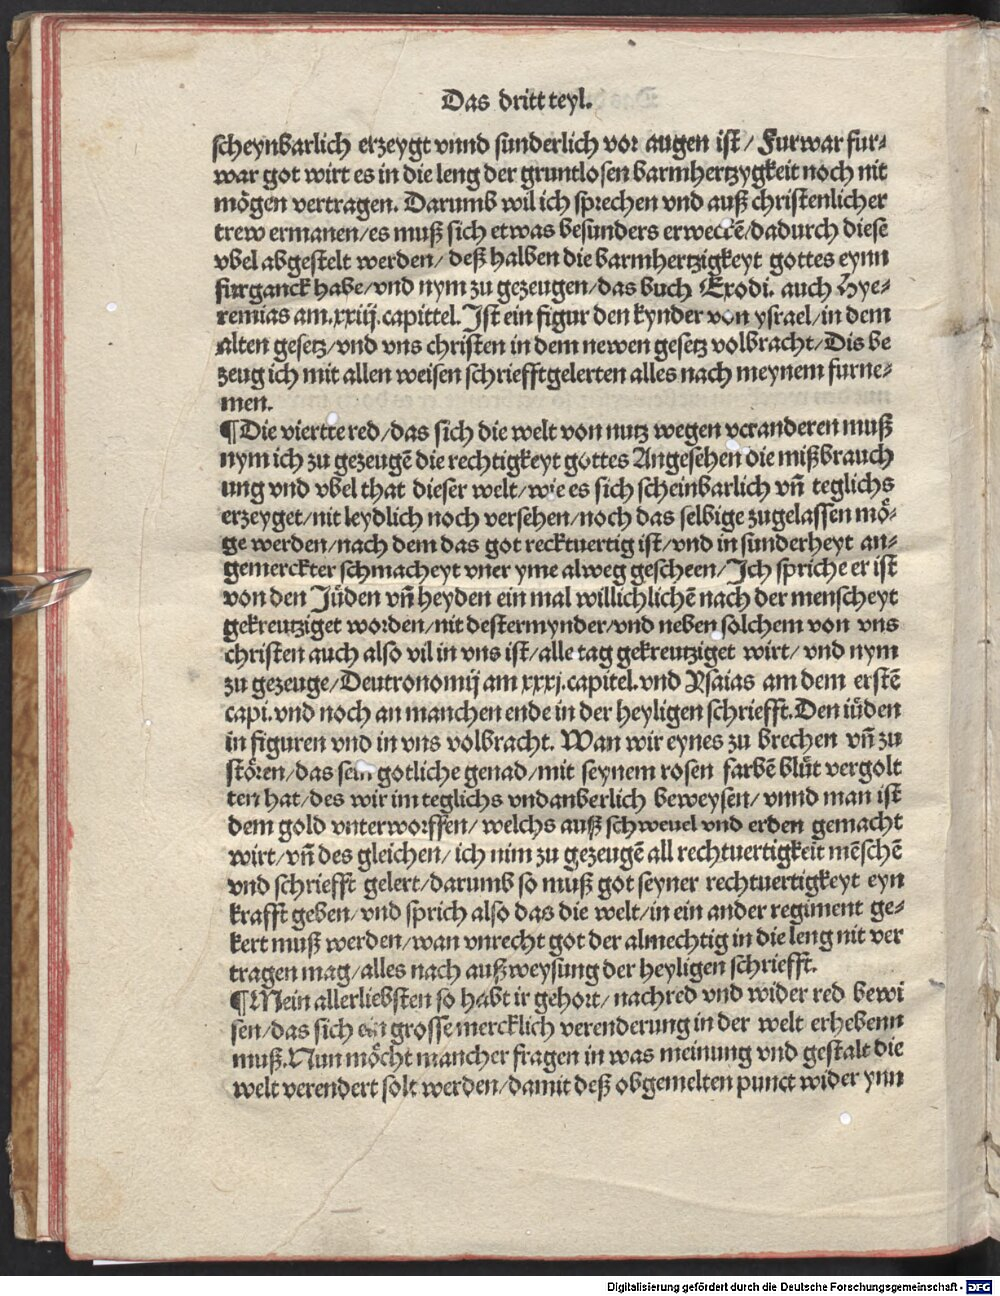 Das dritt teyl.
scheynbarlich erzeygt vnnd sunderlich vor augen ist/ Furwar fur⸗
war got wirt es in die leng der gruntlosen barmhertzygkeit noch nit
mögen vertragen. Darumb wil ich sprechen vnd auß christenlicher
trew ermanen/es muß sich etwas besunders erweckē/dadurch diese
vbel abgestelt werden/ deß halben die barmhertzigkeyt gottes eynn
furganck habe/vnd nym zu gezeugen/das buch Exodi. auch Hye⸗
remias am.xxiij.capittel. Ist ein figur den kynder von ysrael/in dem
alten gesetz/vnd vns christen in dem newen gesetz volbracht/Dis be
zeug ich mit allen weisen schriefftgelerten alles nach meynem furne⸗
men.
¶Die viertte red/das sich die welt von nutz wegen veranderen muß
nym ich zu gezeugē die rechtigkeyt gottes Angesehen die mißbrauch
ung vnd vbel that dieser welt/wie es sich scheinbarlich vn̄ teglichs
erzeyget/nit leydlich noch versehen/noch das selbige zugelassen mö⸗
ge werden/nach dem das got recktuertig ist/vnd in sunderheyt an⸗
gemerckter schmacheyt vner yme alweg gescheen/Ich spriche er ist
von den Jüden vn̄ heyden ein mal willichlichē nach der menscheyt
gekreutziget worden/nit destermynder/vnd neben solchem von vns
christen auch also vil in vns ist/alle tag gekreutziget wirt/ vnd nym
zu gezeuge/Deutronomij am xxxj.capitel.vnd Ysaias am dem erstē
capi.vnd noch an manchen ende in der heyligen schriefft.Den iüden
in figuren vnd in vns volbracht. Wan wir eynes zu brechen vn̄ zu
stören/das sein gotliche genad/mit seynem rosen farbē blüt vergolt
ten hat/des wir im teglichs vndanberlich beweysen/vnnd man ist
dem gold vnterworffen/welchs auß schweuel vnd erden gemacht
wirt/vn̄ des gleichen/ich nim zu gezeugē all rechtuertigkeit mēschē
vnd schriefft gelert/darumb so muß got seyner rechtuertigkeyt eyn
krafft geben/vnd sprich also das die welt/in ein ander regiment ge⸗
kert muß werden/wan vnrecht got der almechtig in die leng nit ver
tragen mag/alles nach außweysung der heyligen schriefft.
¶Mein allerliebsten so habt ir gehort/nachred vnd wider red bewi
sen/das sich ein grosse mercklich verenderung in der welt erhebenn
muß.Nun möcht mancher fragen in was meinung vnd gestalt die
welt verendert solt werden/damit deß obgemelten punct wider ynn
Digitalisierung gefördert durch die Deutsche Forschungsgemeinschaft - DFG